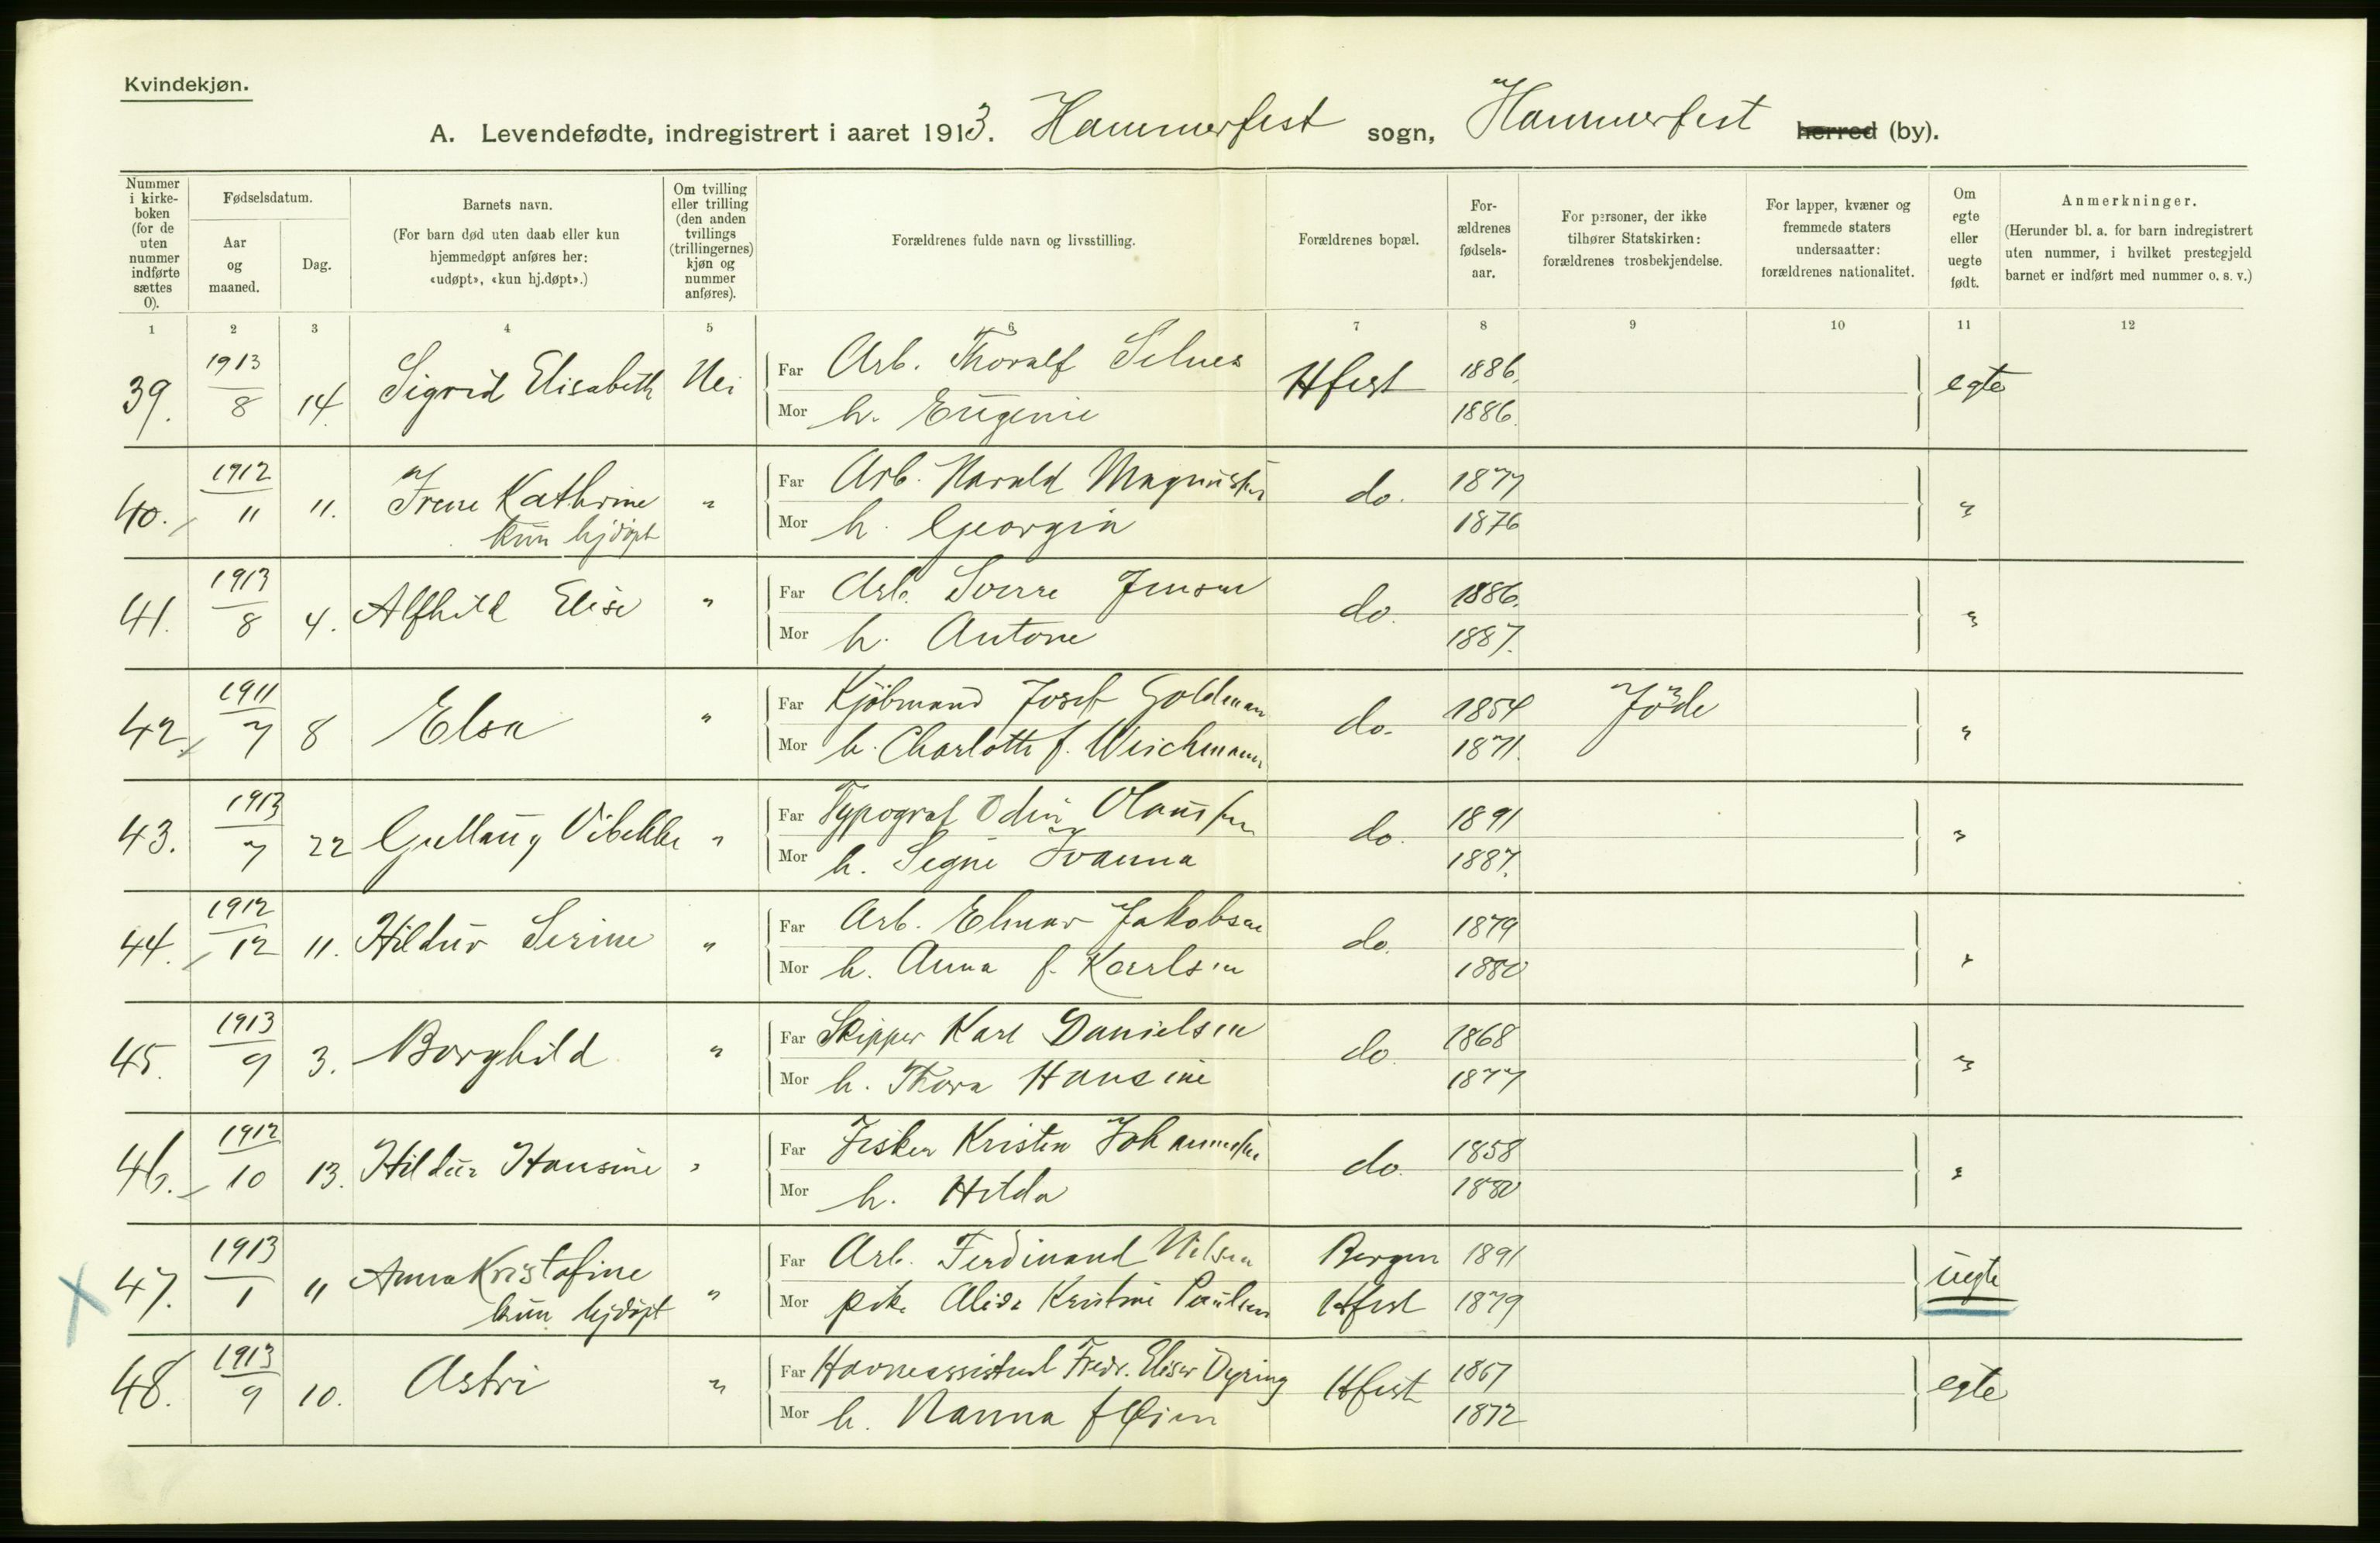 Kvindekjøn.
A. Levendefødte, indregistrert i aaret 1913. Hammerfest sogn, Hammerfest herred (by).
Nummer i kirkeboken (for de uten nummer indførte sættes 0).
Fødselsdatum.
Aar og maaned.
Dag.
Barnets navn.
(For barn død uten daab eller kun hjemmedøpt anføres her: «udøpt», «kun hj.døpt».)
Om tvilling eller trilling (den anden tvillings (trillingernes) kjøn og nummer anføres).
Forældrenes fulde navn og livsstilling.
Forældrenes bopæl.
Forældrenes fødselsaar.
For personer, der ikke tilhører Statskirken: forældrenes trosbekjendelse.
For lapper, kvæner og fremmede staters undersaatter: forældrenes nationalitet.
Om egte eller uegte født.
Anmerkninger.
(Herunder bl. a. for barn indregistrert uten nummer, i hvilket prestegjeld barnet er indført med nummer o. s. v.)
1 2 3 4 5 6 7 8 9 10 11 12
39. 1913 8 14. Sigrid Elisabeth Nei Far Arb. Thoralf Selnes Hfest 1886. egte
Mor h. Eugenie 1886.
40. 1912 11 11. Irene Kathrine " Far Arb. Harald Magnussen do. 1877 "
kun hjdöpt Mor h. Georgia 1876
41. 1913 8 4. Alfhild Elise " Far Arb. Sverre Jensen do. 1886. "
Mor h. Antone 1887.
42. 1911 7 8 Elsa " Far Kjöbmand Josef Goldman do. 1854 Jöde "
Mor h. Charlotte f. Weichmann 1871.
43. 1913 7 22 Gullaug Vibekke " Far Typograf Odin Olaussen do. 1891 "
Mor h. Signe Ivanna 1887.
44. 1912 12 11. Hildur Serine " Far Arb. Elmar Jakobsen do. 1879 "
Mor h. Anna f. Karlsen 1880
45. 1913 9 3. Borghild " Far Skipper Karl Danielsen do. 1868 "
Mor h. Thora Hansine 1877
46. 1912 10 13. Hildur Hansine " Far Fisker Kristen Johannessen do. 1858 "
Mor h. Hilda 1880
47. 1913 1 11 Anna Kristofine " Far Arb. Ferdinand Nilsen Bergen 1891 uegte
kun hjdöpt Mor pike Alida Kristine Paulsen Hfest 1879
48. 1913 9 10. Astri " Far Havneassistent Fredr. Elisar Dyring Hfest 1867 egte
Mor h. Nanna f Øien 1872